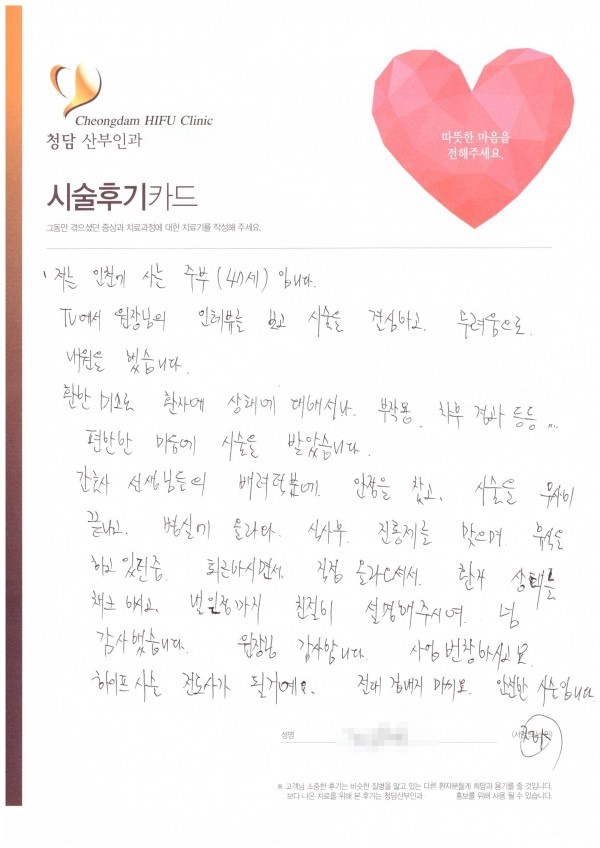 Cheongdam HIFU Clinic
청담 산부인과
따뜻한 마음을
전해주세요.
시술후기카드
그동안 겪으셨던 증상과 치료과정에 대한 치료기를 작성해 주세요.
저는 인천에 사는 주부 (47세) 입니다.
TV에서 원장님의 인터뷰를 보고 시술을 결심하고. 두려움으로.
내원을 했습니다.
환한 미소로 환자에 상태에 대해서나. 부작용. 차후 결과 등등 ...
편안한 마음에 시술을 받았습니다.
간호사 선생님들의 배려덕분에. 안정을 찾고. 시술을 무사히
끝나고. 병실에 올라와. 식사후. 진통제를 맞으며. 휴식을
하고 있던중. 퇴근하시면서. 직접 올라오셔서. 환자 상태를
체크 하시고. 별일정까지 친절히 설명해주시며. 넘
감사했습니다. 원장님 감사합니다. 사업 번창하시고요.
하이프 시술 전도사가 될거예요. 전대 겁내지 마시고. 안전한 시술입니다.
성명
※ 고객님 소중한 후기는 비슷한 질병을 앓고 있는 다른 환자분들께 희망과 용기를 줄 것입니다.
보다 나은 치료를 위해 본 후기는 청담산부인과 홍보를 위해 사용 될 수 있습니다.